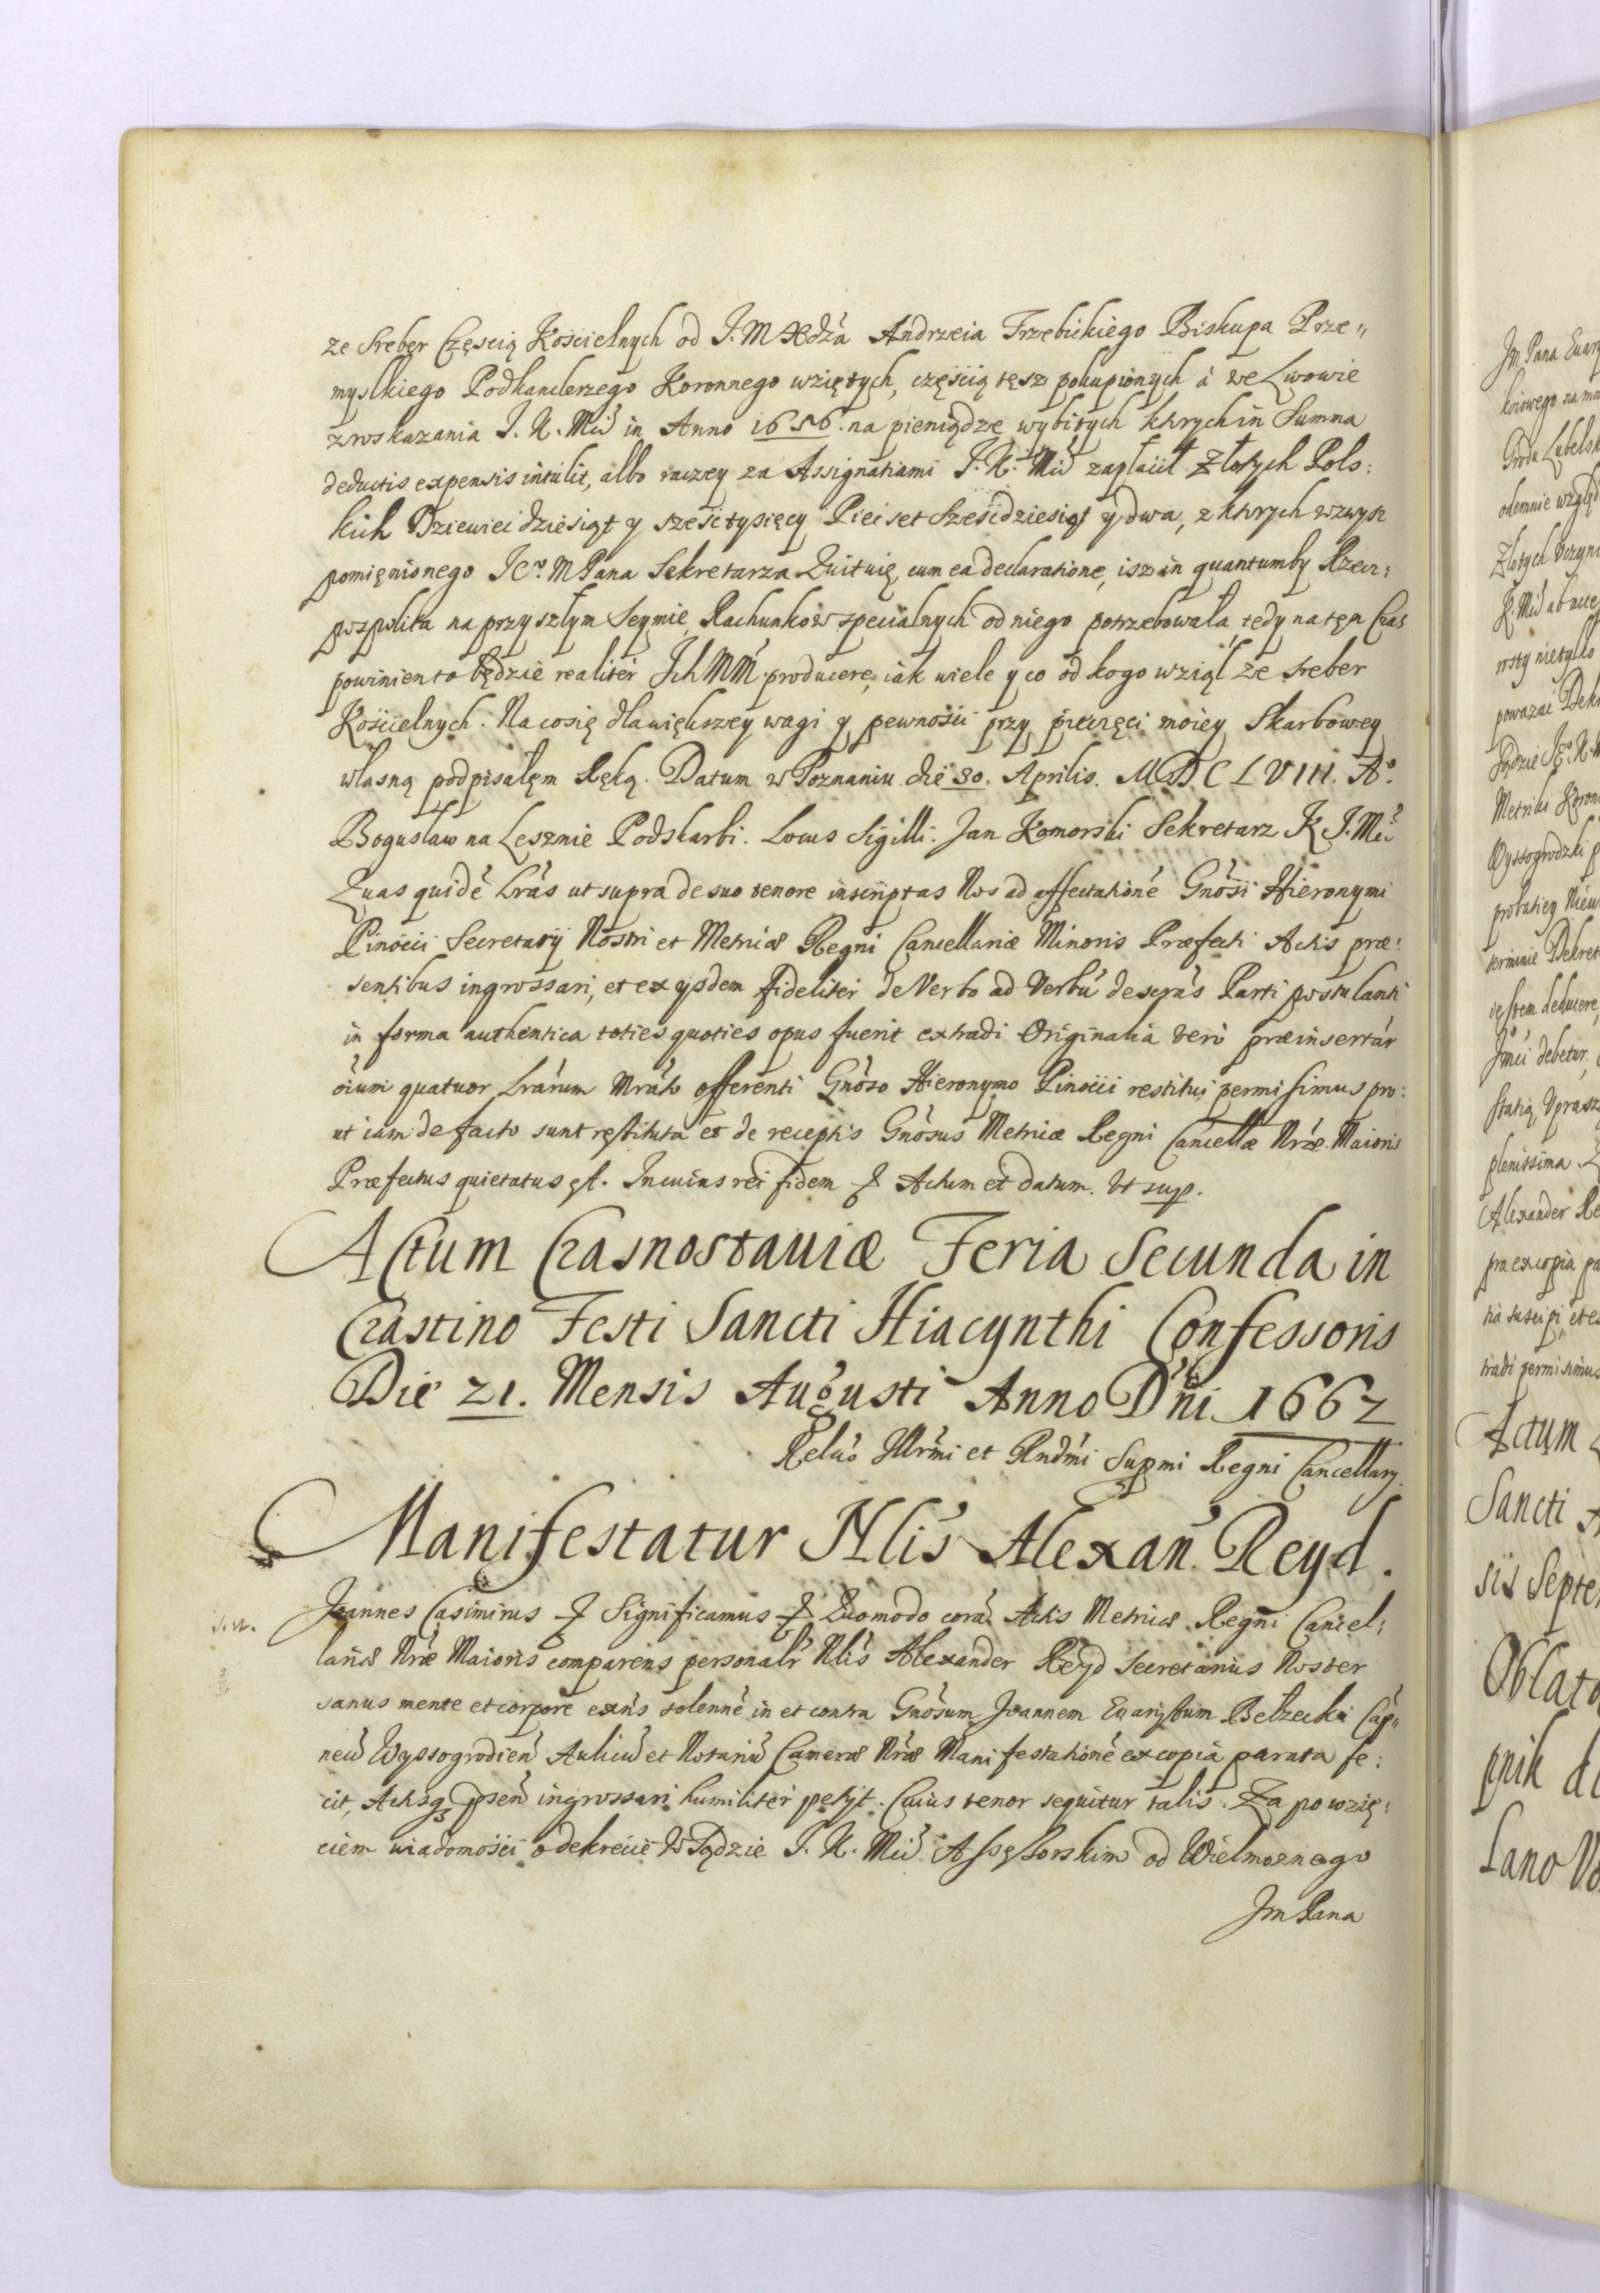 ze Srebęr Częscią Kościelnych od J. M Xdźa Andrzeia Trzebickiego Biskupa Prze„
myslkiego Podkanclerzego Koronnego wziętych, częścią tęsz pokupionych á we Lwowie
z wskazania J. K. Mći in Anno 1656. na pieniądze wybitych ktorych in Summa
deductis expensis intulit, albo raczey za Assignatiami J. K. Mći zapłacił Złotych Pols:
kich Dziewieć dziesiąt y sześć tysięcy Piećset Sześćdziesiąt y dwa, z ktorych wzwysz
pomięnionego Jeº. M Pana Sekretarza Quituię, cum ea declaratione, isz in quantumby Rzecz:
pospolita na przyszłym Seymie, Rachunkow specialnych od niego potrzebowała, tedy na tęn Czas
powinien to będzie realiter Ich MM producere, iak wiele y co od kogo wziął ze Sreber
Kościelnych. Na co się dla większey wagi y pewności przy pieczęci moiey Skarbowey
własną podpisałęm Ręką. Datum w Poznaniu die 30. Aprilis. MDCLVIII. Aº.
Bogusław na Lesznie Podskarbi. Locus Sigilli. Jan Komorski Sekretarz K J. Mći
Quas quidē Lrās ut supra de suo tenore inscriptas Nos ad affectationē Gnōsi Hieronymi
Pinocii Secretarij Nostri et Metricæ Regni Cancellariæ Minoris Præfecti Actis præ:
sentibus ingrossari, et ex ijsdem fideliter de Verbo ad Verbū descrās Parti postulanti
in forma authentica toties quoties opus fuerit extradi Originalia vero præinsertár
oīum quatuor Lrārum Mrāto offerenti Gnōso Hieronymo Pinocii restitui permisimus pro:
ut iam de facto sunt ręstituta et de receptis Gnōsus Metricæ Regni Cancellæ Nræ Maioris
Præfectus quietatus ęst. In cuius rei fidem & Actum et datum. Ut sup.
Actum Crasnostaviæ Feria Secunda in
Crastino Festi Sancti Hiacynthi Confessoris
Die 21. Mensis Augusti Anno Dñi 1662
Relāo Illrmi et Rndmi Supmi Regni Cancellarij.
Manifestatur Nlis Alexan. Reyd.
Joannes Casimirus & Significamus & Quomodo corā Actis Metricæ Regni Cancel:
lariæ Nræ Maioris comparens personalr Nlis Alexander Reyd Secretarius Noster
sanus mente et corpore exñs solenne in et contra Gnōsum Joannem Evarystum Bełzecki Cap„
neū Wyssogrodień Aulicū et Notariū Cameræ Nræ Manifestationē ex copia parata fe:
cit, Actisq3 psen ingrossari humiliter petijt. Cuius tenor sequitur talis. Za powzię:
ciem wiadomości o dekrecie w Sądzie J. K. Mći Assęssorskim od Wielmoznego
Jm Pana